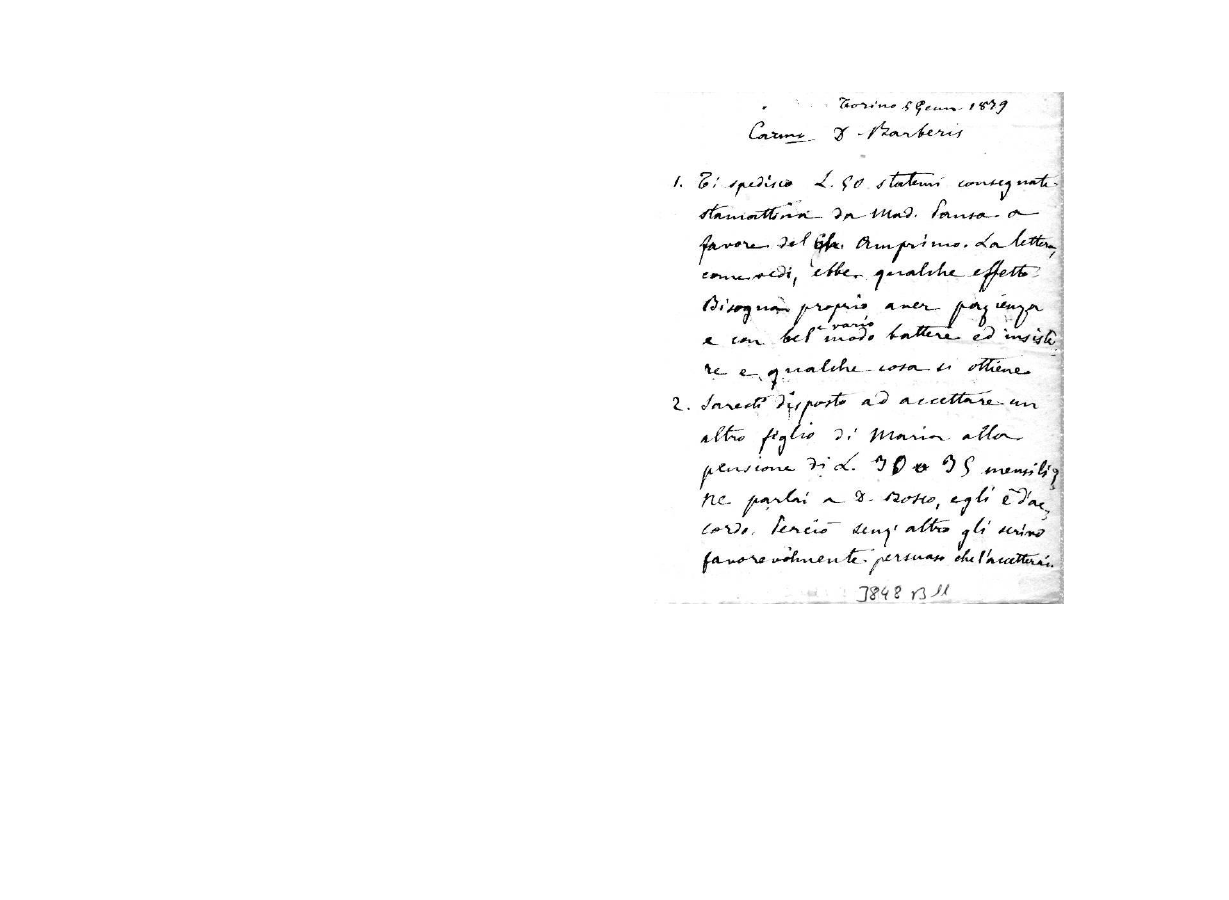 Torino 5 Genn. 1879
Carmo D. Barberis
1. Ti spedisco L. 50 statemi consegnate
stamattina da Mad. Pansa a
favore del Ch. Amprimo. La lettera,
come vedi, ebbe qualche effetto.
Bisogna proprio aver pazienza
e con bel e vario modo battere ed insiste
re e qualche cosa si ottiene
2. Saresti disposto ad accettare un
altro figlio di Maria alla
pensione di L. 30 o 35 mensili?
Ne parlai a D. Bosco, egli è d'ac
cordo. Perciò senz'altro gli scrivo
favorevolmente persuaso che l'accetterai.
3848 B 11